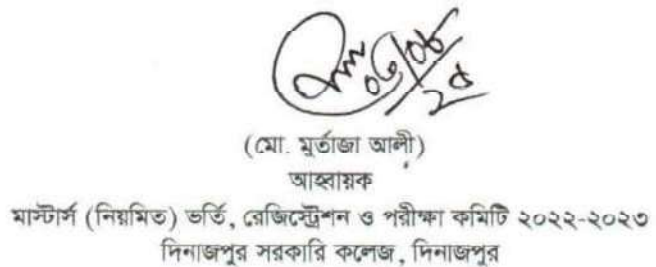 ০৬/০৮
২৫
(মো. মুর্তাজা আলী)
আহবায়ক
মাস্টার্স (নিয়মিত) ভর্তি, রেজিস্ট্রেশন ও পরীক্ষা কমিটি ২০২২-২০২৩
দিনাজপুর সরকারি কলেজ, দিনাজপুর